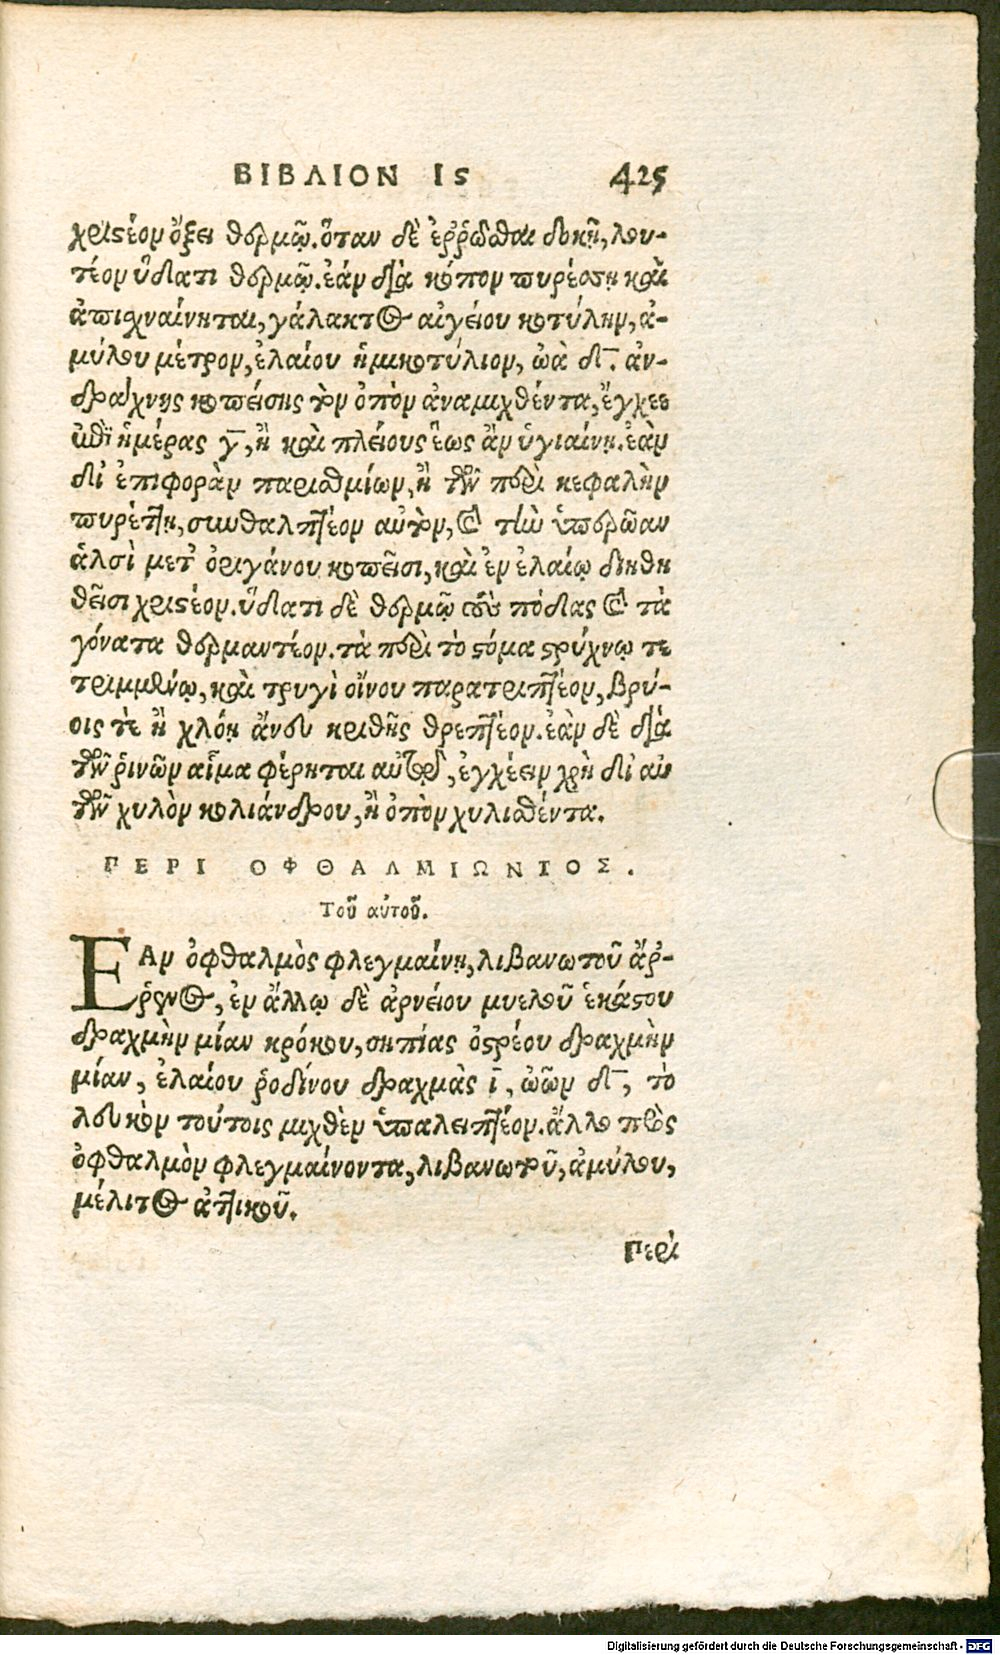 ΒΙΒΛΙΟΝ Ιϛ 425
χριστέον ὄξει θερμῷ. ὅταν δὲ ἐῤῥῶσθαι δοκῇ, λου-
τέον ὕδατι θερμῷ. ἐάν διὰ κόπον πυρέσσῃ καὶ
ἀπισχναίνηται, γάλακτος αἰγείου κοτύλην, ἀ-
μύλου μέτρον, ἐλαίου ἡμικοτύλιον, ὠὰ δ. ἀν-
δράχνης κοπείσης τὸν ὀπὸν ἀναμιχθέντα, ἔγχεε
ἐπὶ ἡμέρας γ, ἢ καὶ πλείους ἕως ἂν ὑγιαίνῃ. ἐὰν
δι᾽ ἐπιφορὰν παρισθμίων, ἢ τῶν περὶ κεφαλὴν
πυρέττῃ, συνθαλπτέον αὐτὸν, καὶ τὴν ὑπερῶαν
ἁλσὶ μετ᾽ ὀριγάνου κοπεῖσι, καὶ ἐν ἐλαίῳ διηθη
θεῖσι χριστέον. ὕδατι δὲ θερμῷ τοὺς πόδας καὶ τὰ
γόνατα θερμαντέον. τὰ περὶ τὸ στόμα στρύχνῳ τε
τριμμένῳ, καὶ τρυγὶ οἴνου παρατριπτέον, βρύ-
οις τὲ ἢ χλόῃ ἄνευ κριθῆς θρεπτέον. ἐὰν δὲ διὰ
τῶν ῥινῶν αἷμα φέρηται αὐτῷ, ἐγχέειν χρὴ δι᾽ αὐ
τῶν χυλὸν κολιάνδρου, ἢ ὀπὸν χυλισθέντα.
ΠΕΡΙ ΟΦΘΑΛΜΙΩΝΤΟΣ.
Τοῦ αὐτοῦ.
ΕΑν ὀφθαλμὸς φλεγμαίνῃ, λιβανωτοῦ ἄῤ-
ῥενος, ἐν ἄλλῳ δὲ ἀρνείου μυελοῦ ἑκάστου
δραχμὴν μίαν κρόκου, σηπίας ὀστρέου δραχμὴν
μίαν, ἐλαίου ῥοδίνου δραχμὰς ι, ὠῶν δ, τὸ
λευκὸν τούτοις μιχθὲν ὑπαλειπτέον. ἄλλο πρὸς
ὀφθαλμὸν φλεγμαίνοντα, λιβανωτοῦ, ἀμύλου,
μέλιτος ἀττικοῦ.
Περὶ
Digitalisierung gefördert durch die Deutsche Forschungsgemeinschaft - DFG